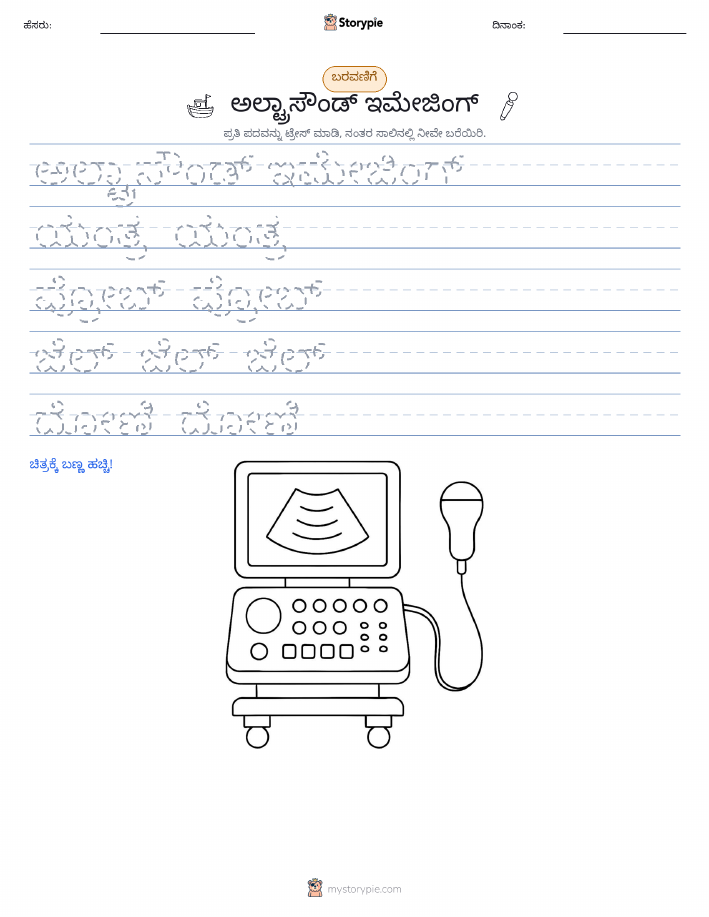 ಹೆಸರು:
Storypie
ದಿನಾಂಕ:
ಬರವಣಿಗೆ
ಅಲ್ಟ್ರಾಸೌಂಡ್ ಇಮೇಜಿಂಗ್
ಪ್ರತಿ ಪದವನ್ನು ಟ್ರೇಸ್ ಮಾಡಿ, ನಂತರ ಸಾಲಿನಲ್ಲಿ ನೀವೇ ಬರೆಯಿರಿ.
ಅಲ್ಟ್ರಾಸೌಂಡ್ ಇಮೇಜಿಂಗ್
ಯಂತ್ರ ಯಂತ್ರ
ಪ್ರೋಬ್ ಪ್ರೋಬ್
ಜೆಲ್ ಜೆಲ್ ಜೆಲ್
ದೋಣಿ ದೋಣಿ
ಚಿತ್ರಕ್ಕೆ ಬಣ್ಣ ಹಚ್ಚಿ!
mystorypie.com